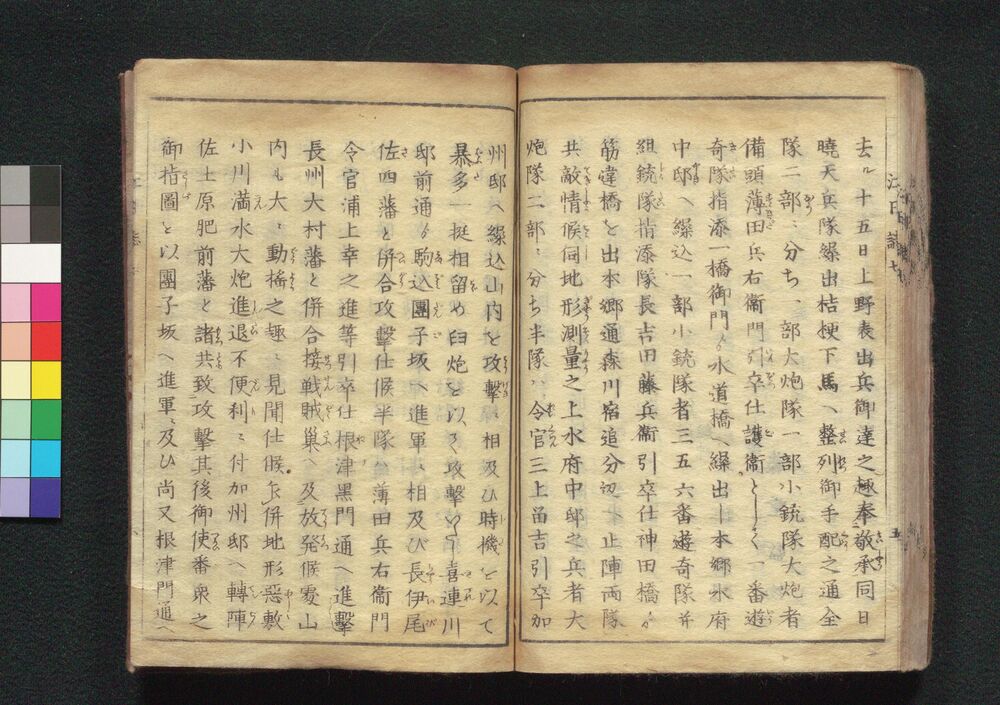 去ル十五日上野表出兵御達之趣奉敬承同日
曉天兵隊繰出桔梗下馬ヘ整列御手配之通全
隊二部ニ分ち一部大炮隊一部小銃隊大炮者
備頭薄田兵右衞門引卒仕護衞として一番遊
奇隊指添一橋御門ゟ水道橋ヘ繰出し本郷水府
中邸ヘ繰込一部小銃隊者三五六番遊奇隊并
組銃隊指添隊長吉田藤兵衞引卒仕神田橋ゟ
筋違橋を出本郷通森川宿追分ニ止陣両隊
共敵情候伺地形測量之上水府中邸之兵者大
炮隊二部ニ分ち半隊ハ令官三上畄吉引卒加
州邸ヘ繰込山内を攻擊相及ひ時機を以て
暴多一挺相留め臼炮を以て攻擊いたし喜連川
邸前通ゟ駒込團子坂ヘ進軍ニ相及ひ長伊尾
佐四藩と併合攻擊仕候半隊ハ薄田兵右衞門
令官浦上幸之進等引卒仕根津黒門通ヘ進擊
長州大村藩と併合接戦賊巢ヘ及放発候處山
内も大ニ動揺之趣ニ見聞仕候尓併地形惡敷
小川満水大炮進退不便利ニ付加州邸ヘ轉陣
佐土原肥前藩と諸共致攻擊其後御使番衆之
御指圖を以團子坂ヘ進軍ニ及ひ尚又根津門通ヘ